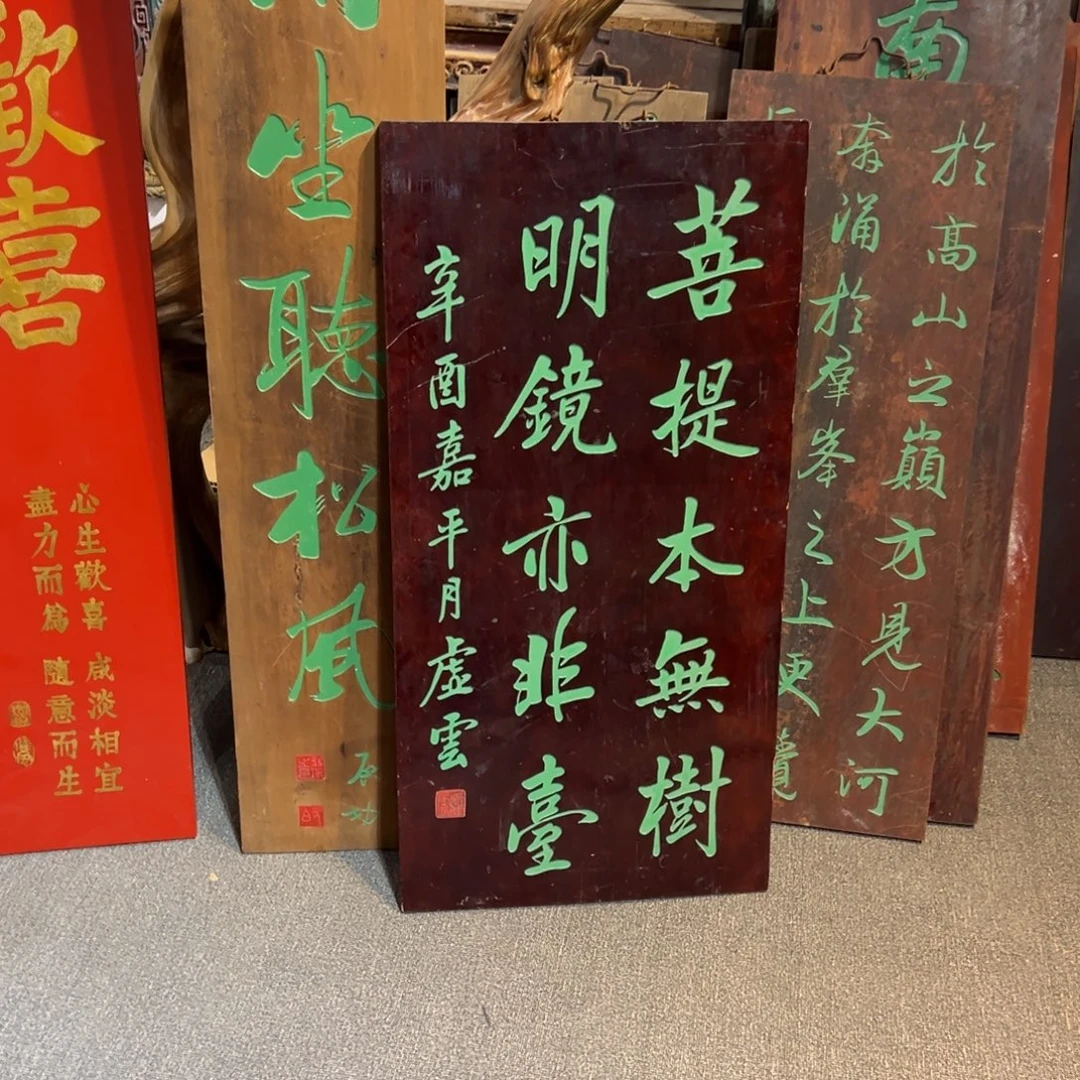 菩提本無樹
明鏡亦非臺
辛酉嘉平月虛雲
坐聽松風
启功
歡喜
心生歡喜 咸淡相宜
盡力而為 隨意而生
於高山之巔方見大河
奔涌於羣峯之上更
南